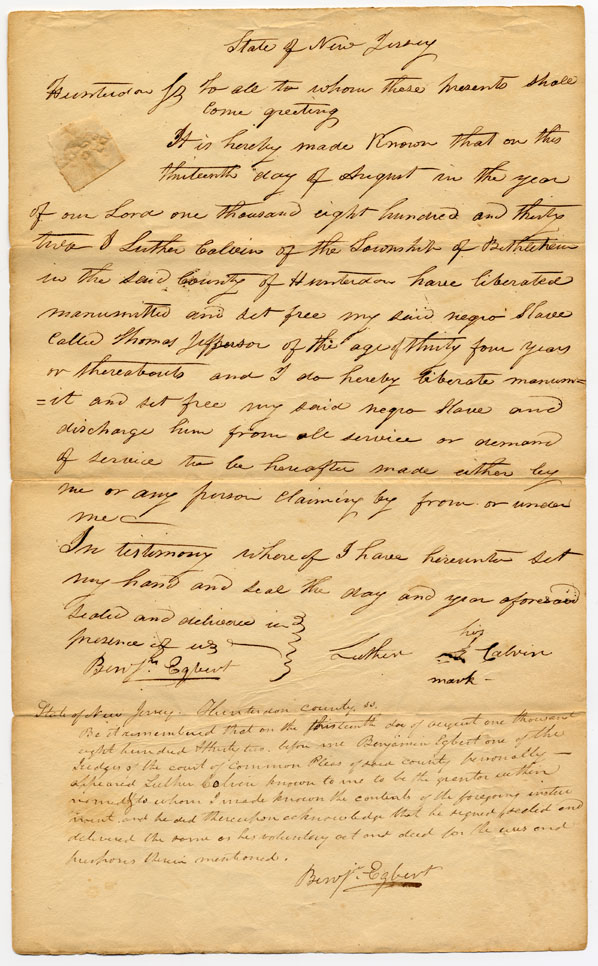 State of New Jersey
Hunterdon Ss To all to whom these presents shall
Come greeting
It is hereby made Known that on this
thirteenth day of August in the year
of our Lord one thousand eight hundred and thirty
two I Luther Calvin of the Township of Bethlehem
in the said County of Hunterdon have liberated
manumitted and set free my said negro Slave
Called Thomas Jefferson of the age of thirty four years
or thereabouts and I do hereby liberate manum=
=it and set free my said negro Slave and
discharge him from all service or demand
of service to be hereafter made either by
me or any person Claiming by from or under
me
In testimony whereof I have hereunto set
my hand and seal the day and year aforesaid
Sealed and delivered in
presence of us
Benjn. Egbert
Luther his Calvin
mark
State of New Jersey Hunterdon County ss.
Be it remembered that on the thirteenth day of august one thousand
eight hundred & thirty two. before me Benjamin Egbert one of the
Judges of the court of Common Pleas of said county personally
appeared Luther Calvin known to me to be the grantor within
named & to whom I made known the contents of the foregoing instru
ment. and he did thereupon acknowledge that he signed sealed and
delivered the same as his voluntary act and deed for the uses and
purposes therein mentioned.
Benjn. Egbert